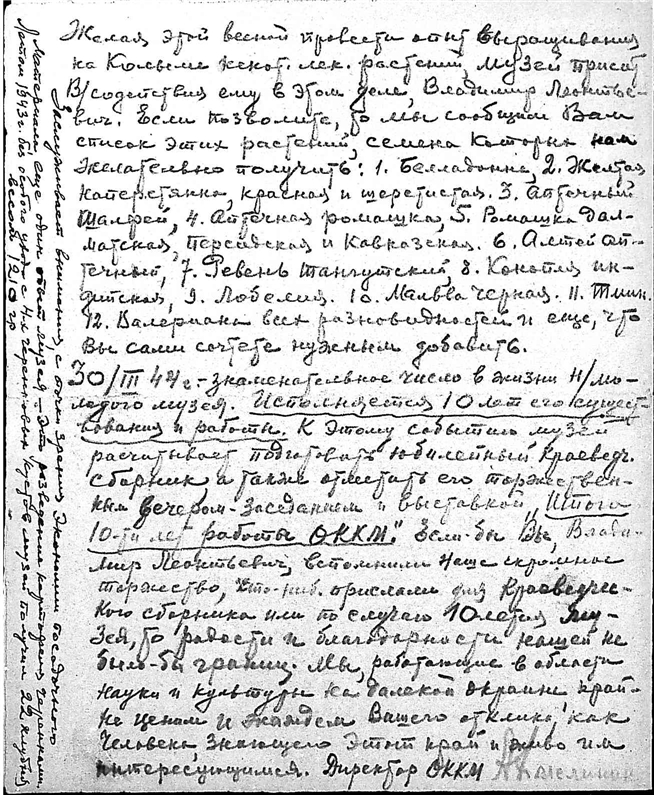 Желая этой весной провести опыт выращивания
на Колыме некот. лек. растений, музей просит
В/содействия ему в этом деле, Владимир Леонтье-
вич. Если позволите, то мы сообщим Вам
список этих растений, семена которых нам
желательно получить: 1. Белладонна, 2. Желтая
наперстянка, красная и шерстистая. 3. Аптечный
шалфей, 4. Аптечная ромашка, 5. Ромашка дал-
матская, персидская и кавказская. 6. Алтей ап-
течный, 7. Ревень тангутский, 8. Конопля ин-
дийская, 9. Лобелия. 10. Мальва черная. 11. Тмин.
12. Валериана всех разновидностей и еще, что
Вы сами сочтете нужным добавить.
30/III 44 г. - знаменательное число в жизни н/мо-
лодого музея. Исполняется 10 лет его сущест-
вования и работы. К этому событию музей
расчитывает подготовить юбилейный краеведч.
сборник а также отметить его торжествен-
ным вечером-заседанием и выставкой "Итоги
10-ти лет работы ОККМ". Если-бы Вы, Влади-
мир Леонтьевич, вспомнили наше скромное
торжество, что-ниб. прислали для краеведчес-
кого сборника или по случаю 10летия му-
зея, то радости и благодарности нашей не
было-бы границ. Мы, работающие в области
науки и культуры на далекой окраине край-
не ценим и ждем Вашего отклика, как
человека, знающего этот край и живо им
интересующимся. Директор ОККМ
Заслуживает внимания, с точки зрения экономии посадочного
материала еще один опыт музея - это разведение картофеля черенками.
Летом 1943 г. без особого ухода с 4-х черенковых кустов музей получил 22 клубня
весом 1210 гр